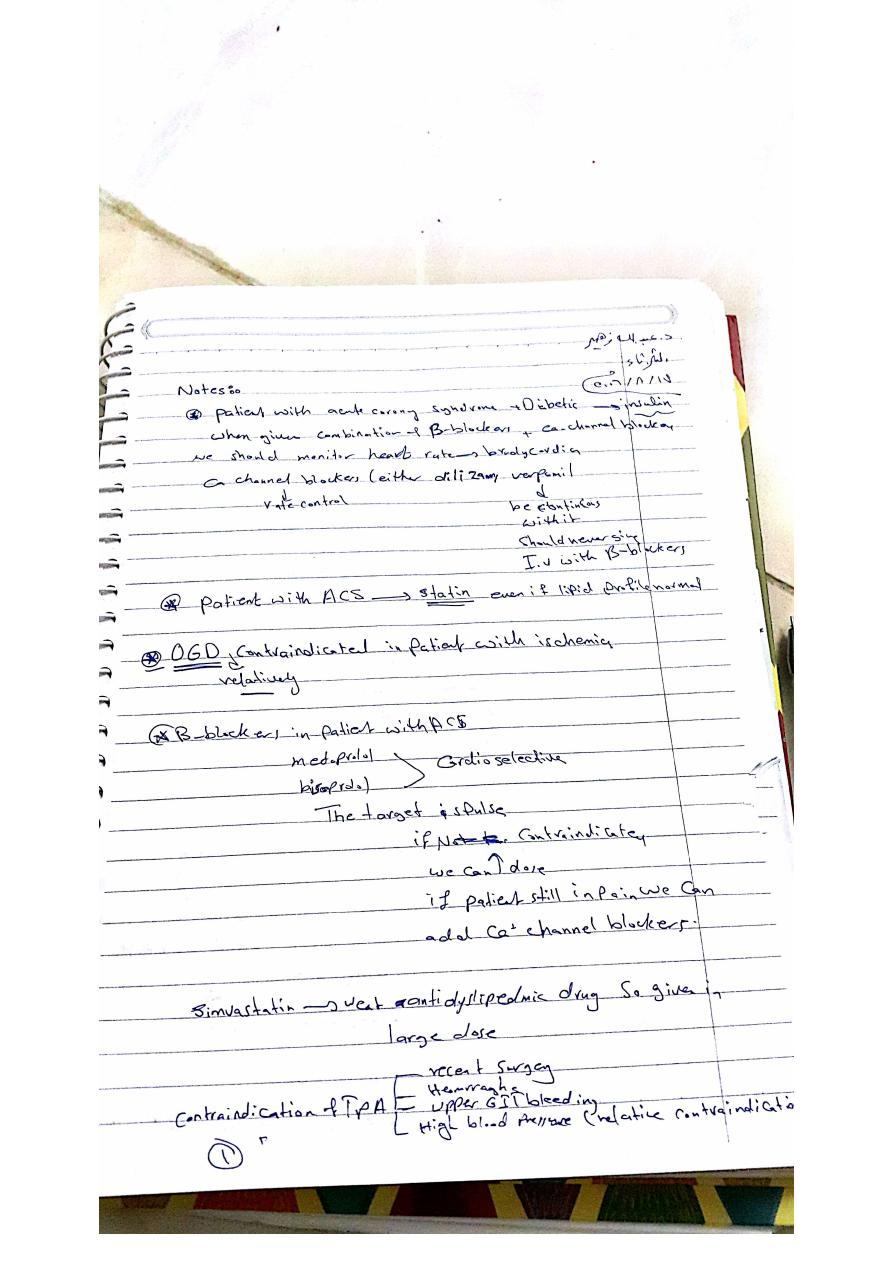 د. عبدالله زهير
الثلاثاء
Notes:
* patient with acute corony syndrome + Diabetic → insulin
when given combination of B-blockers + ca-channel blocker
we should monitor heart rate → bradycardia
Ca channel blockers (either dilizam, verpamil
↓
rate control
↓
be continous
with it
should never give
I.v with B-blockers
* patient with ACS → statin even if lipid profile normal
* OGD, contraindicated in patient with ischemia
relatively
* B-blockers in patient with ACS
metoprolol
bisoprolol
Cardioselective
The target is pulse
if Not contraindicated
we can ↑ dose
if patient still in pain we can
add Ca+ channel blockers.
Simvastatin → weak antidyslipedmic drug So given in
large dose
recent surgey
Hemrraghe
Contraindication of TPA
upper GIT bleeding
High blood pressure (relative contraindicatio
1